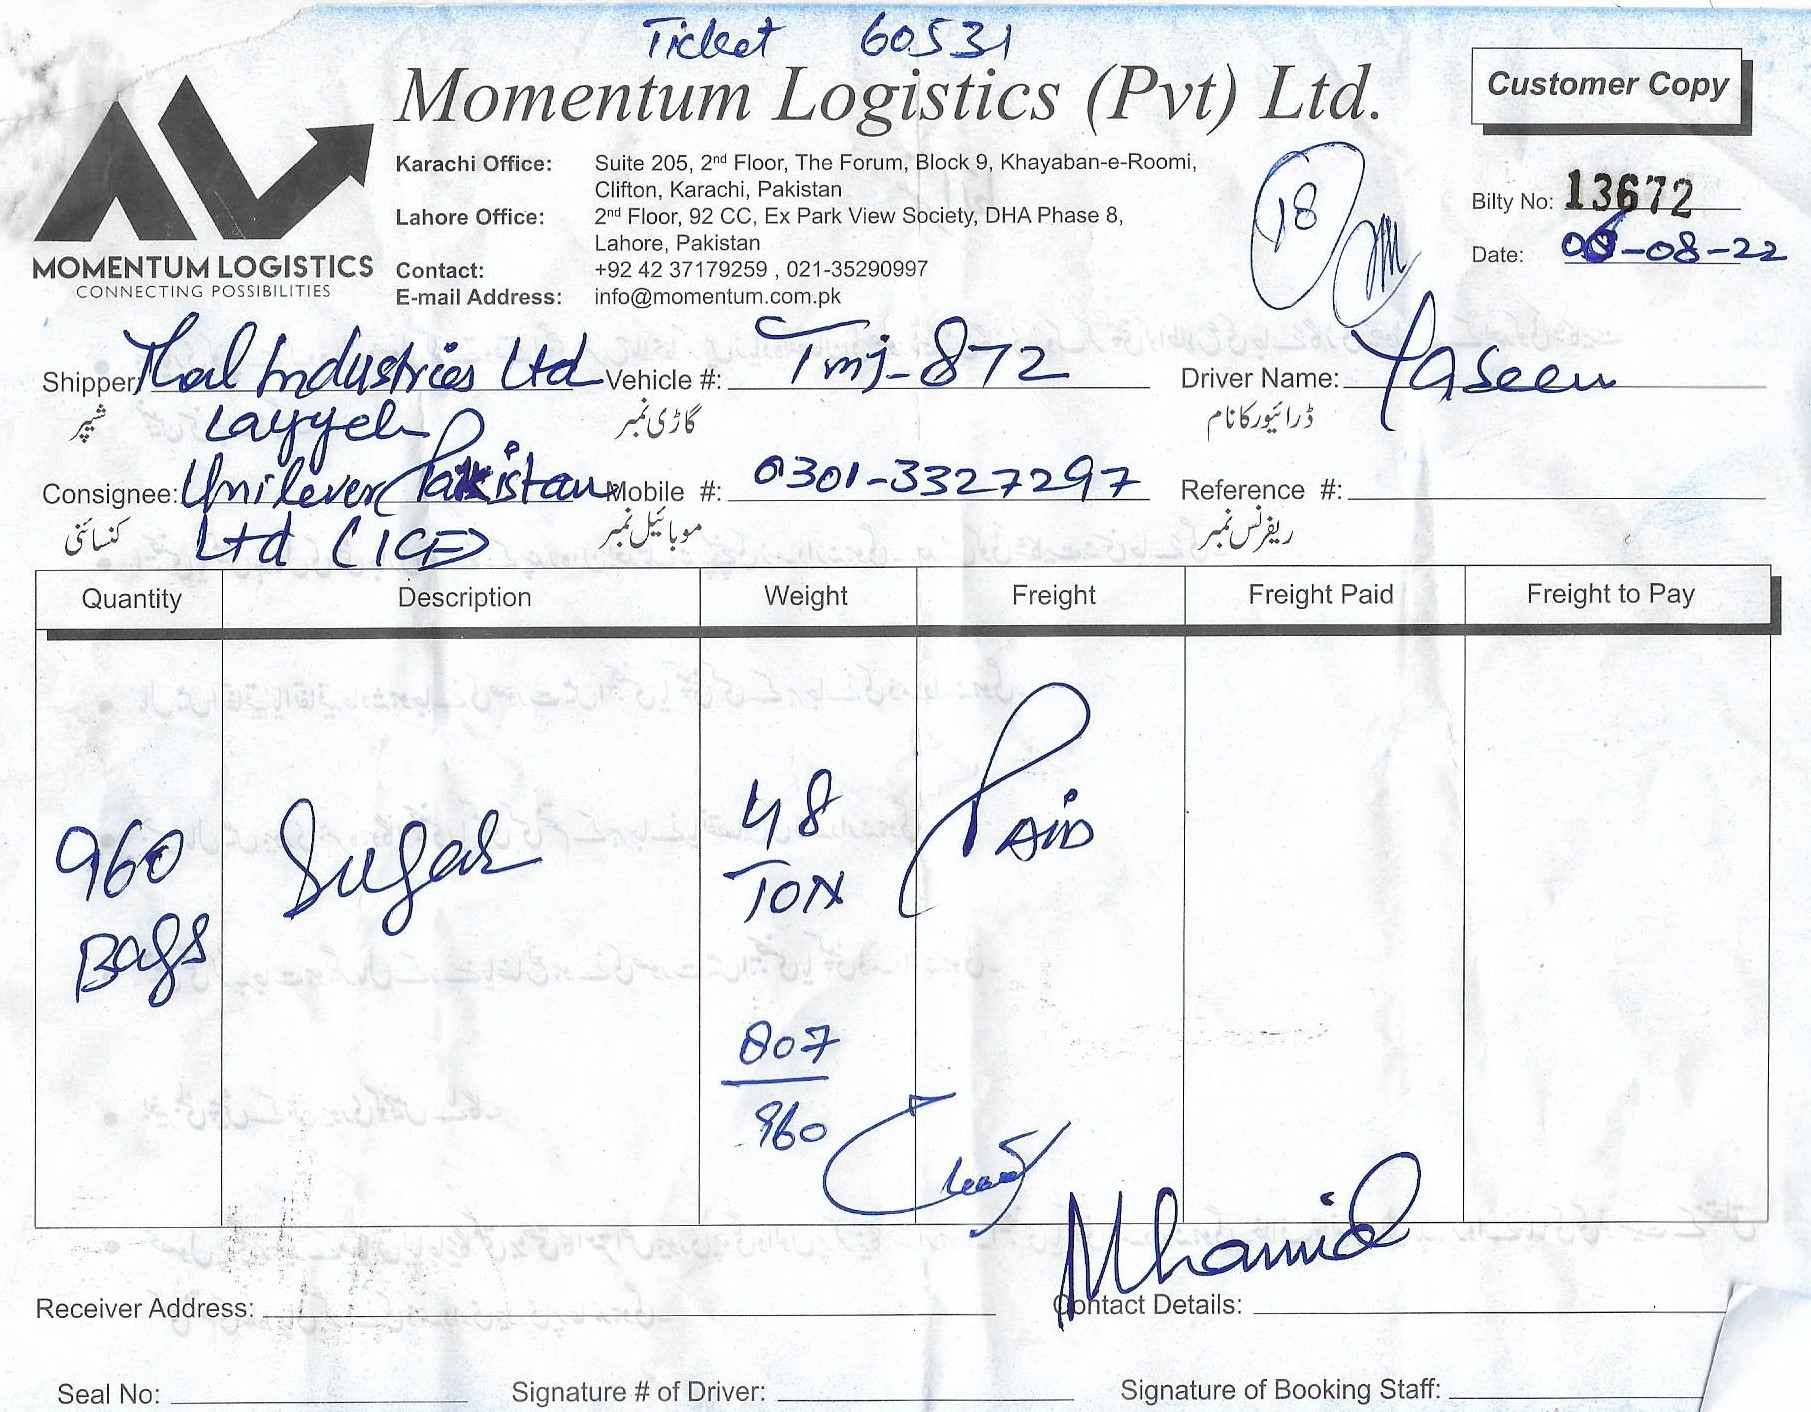 Ticket 60531
Momentum Logistics (Pvt) Ltd.
Customer Copy
MOMENTUM LOGISTICS
CONNECTING POSSIBILITIES
Karachi Office: Suite 205, 2nd Floor, The Forum, Block 9, Khayaban-e-Roomi,
Clifton, Karachi, Pakistan
Lahore Office: 2nd Floor, 92 CC, Ex Park View Society, DHA Phase 8,
Lahore, Pakistan
Contact: +92 42 37179259 , 021-35290997
E-mail Address: info@momentum.com.pk
18
Bilty No: 13672
Date: 06-08-22
Shipper: Thal Industries Ltd Vehicle #: Tmj-872 Driver Name: Yaseen
شیپر Layyah گاڑی نمبر ڈرائیور کا نام
Consignee: Unilever Pakistan Mobile #: 0301-3327297 Reference #:
کنسائنی Ltd (ICF) موبائیل نمبر ریفرنس نمبر
Quantity Description Weight Freight Freight Paid Freight to Pay
960 Sugar 48 PAID
Bags TON
807
960
Receiver Address: Contact Details:
Seal No: Signature # of Driver: Signature of Booking Staff: